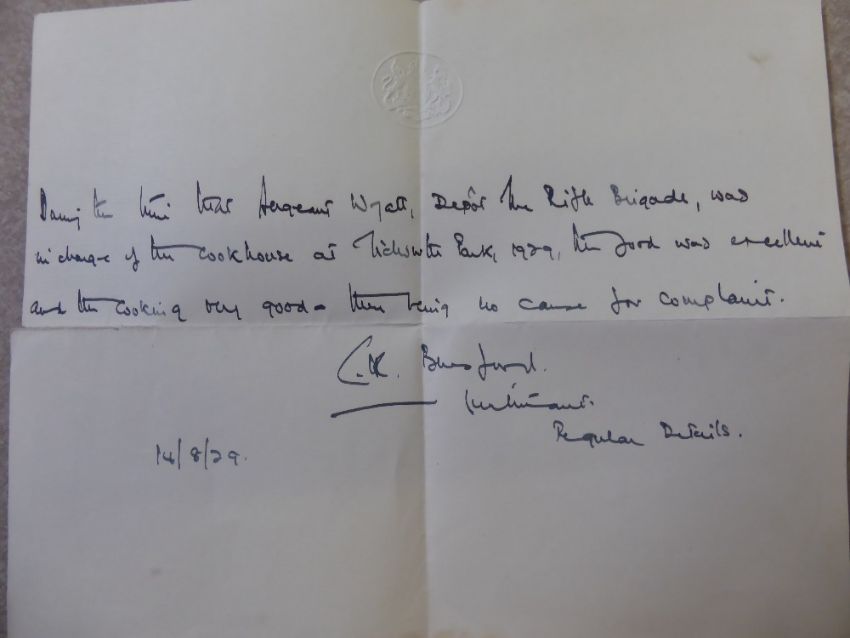 During the time that Sergeant Wyatt, Depôt The Rifle Brigade, was
in charge of the cookhouse at Park, 1929, the food was excellent
and the cooking very good - there being no cause for complaint.
C.K.
Lieutenant.
Regular Details.
14/8/29.